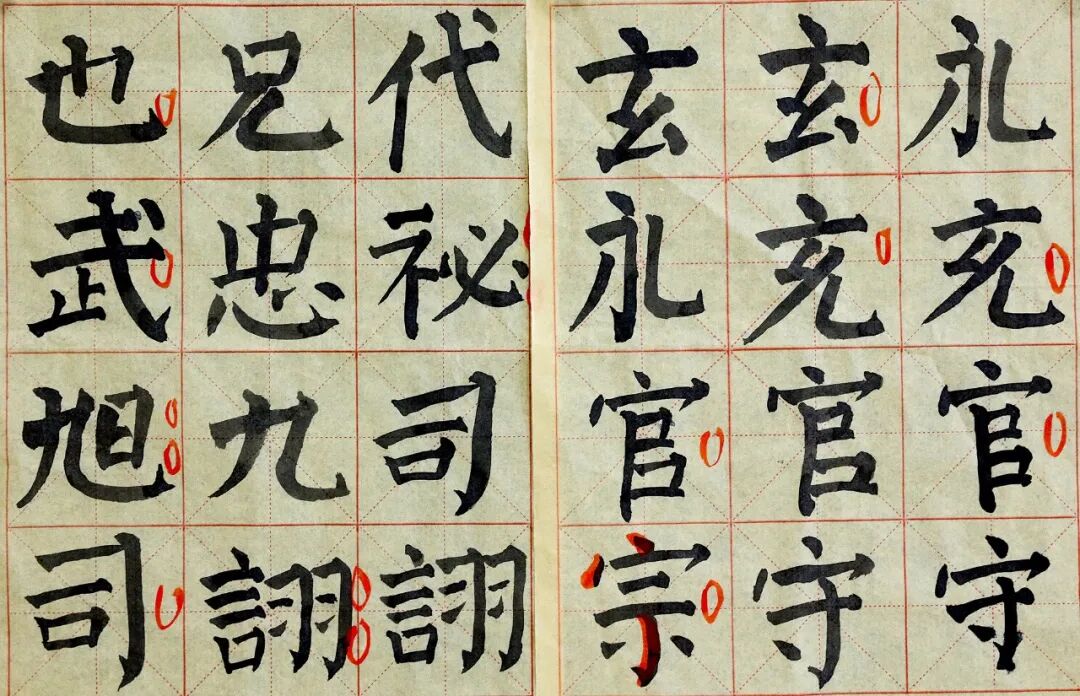 永充官守
玄充官守
玄永官宗
代祕司詡
兄忠九詡
也武旭司